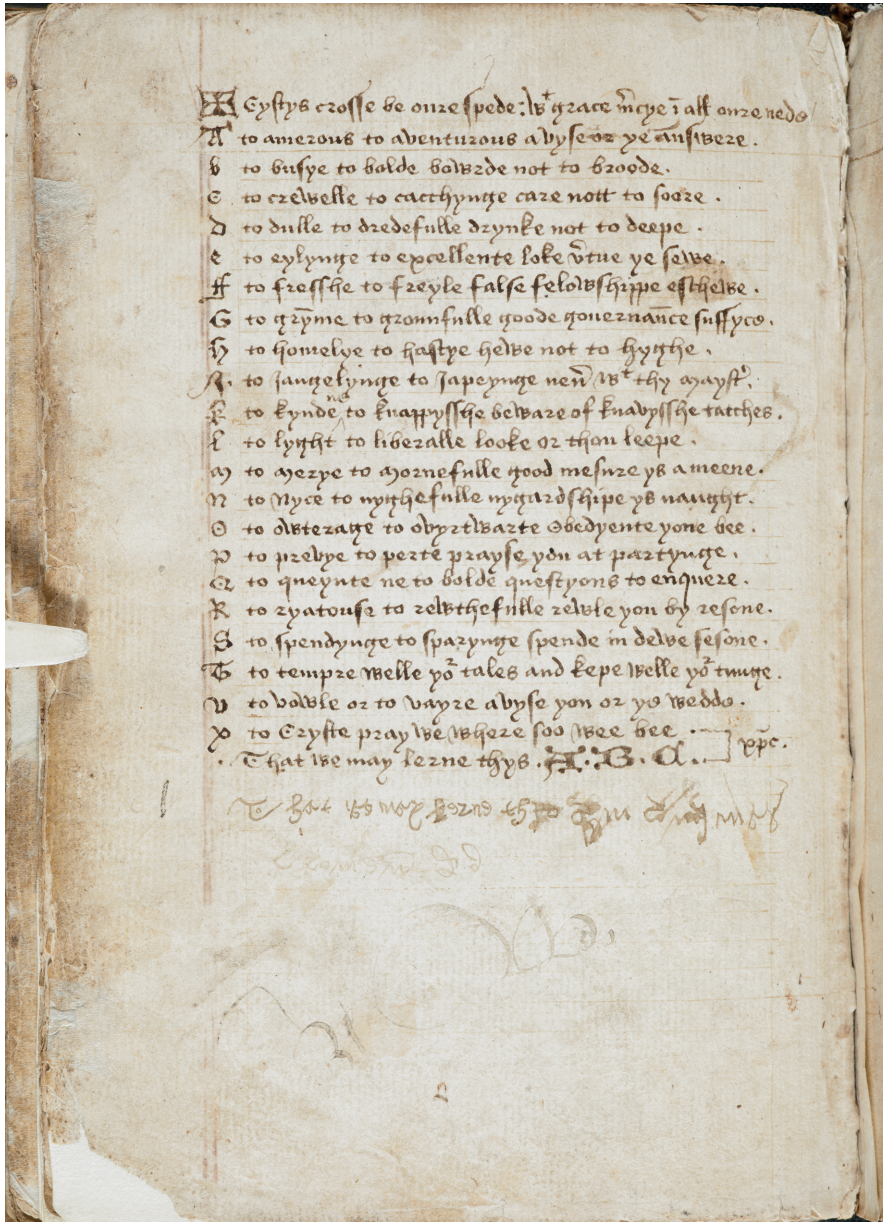 Crystys crosse be oure spede: wt grace m̄cye ī all oure nede
A to amerous to aventurous avyse or ye ānswere.
b to busye to bolde bowrde not to broode.
C to crewelle to cacchynge care nott to soore.
D to dulle to dredefulle drynke not to deepe.
e to eylynge to excellente loke v̄tue ye sewe.
ff to fresshe to freyle false felowshippe eschewe.
G to gry̅me to grounfulle goode governān̄ce suffyce.
H to homelye to hastye hewe not to hyghe.
J. to Jangelynge to Japeynge nen̄ wt thy mayst̉.
K to kyndene to knappysshe beware of knavysshe tatches.
L to lyght to liberalle looke or thou leepe.
M to merye to mornefulle good mesure ys a meene.
N to Nyce to nyghefulle nygardshipe ys naught.
O to owterage to ovyrtwarte Obedyente yone bee.
P to prevye to perte prayse you at partynge.
Q to queynte ne to bolde questyons to enquere.
R to ryatouse to rewthefulle rewle you by resone.
S to spendynge to sparynge spende in dewe sesone.
T to tempre welle yor tales and kepe welle yor tunge.
v to vowle or to vayre avyse you or ye wedde.
x to Cryste pray we where soo wee bee.
xp̄c.
. That we may lerne thys. A. B. C.